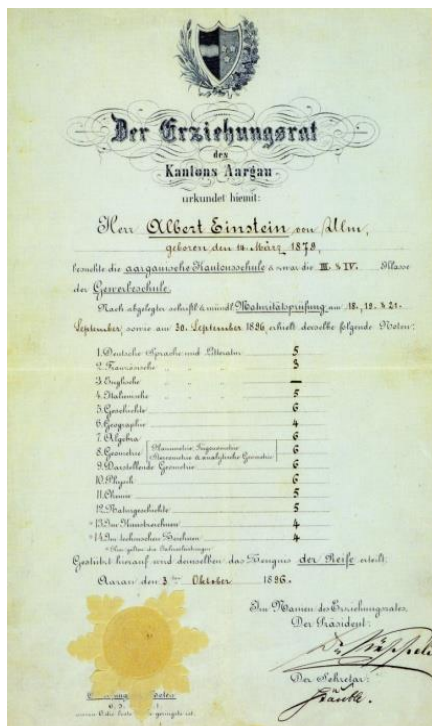 Der Erziehungsrat
des
Kantons Aargau
urkundet hiemit:
Herr Albert Einstein von Ulm,
geboren den 14. März 1879,
besuchte die aargauische Kantonsschule & zwar die III. & IV. Klasse
der Gewerbeschule.
Nach abgelegter schriftl. & mündl. Maturitätsprüfung am 18., 19. & 21.
September, sowie am 30. September 1896, erhielt derselbe folgende Noten:
1. Deutsche Sprache und Litteratur 5
2. Französische " " " 3
3. Englische " " " —
4. Italienische " " " 5
5. Geschichte 6
6. Geographie 4
7. Algebra 6
8. Geometrie (Planimetrie, Trigonometrie, Stereometrie & analytische Geometrie) 6
9. Darstellende Geometrie 6
10. Physik 6
11. Chemie 5
12. Naturgeschichte 5
* 13. Im Kunstzeichnen 4
* 14. Im technischen Zeichnen 4
* Hier gelten die Jahresleistungen.
Gestützt hierauf wird demselben das Zeugnis der Reife erteilt.
Aarau den 3ten Oktober 1896.
Im Namen des Erziehungsrates,
Der Präsident:
Der Sekretär: